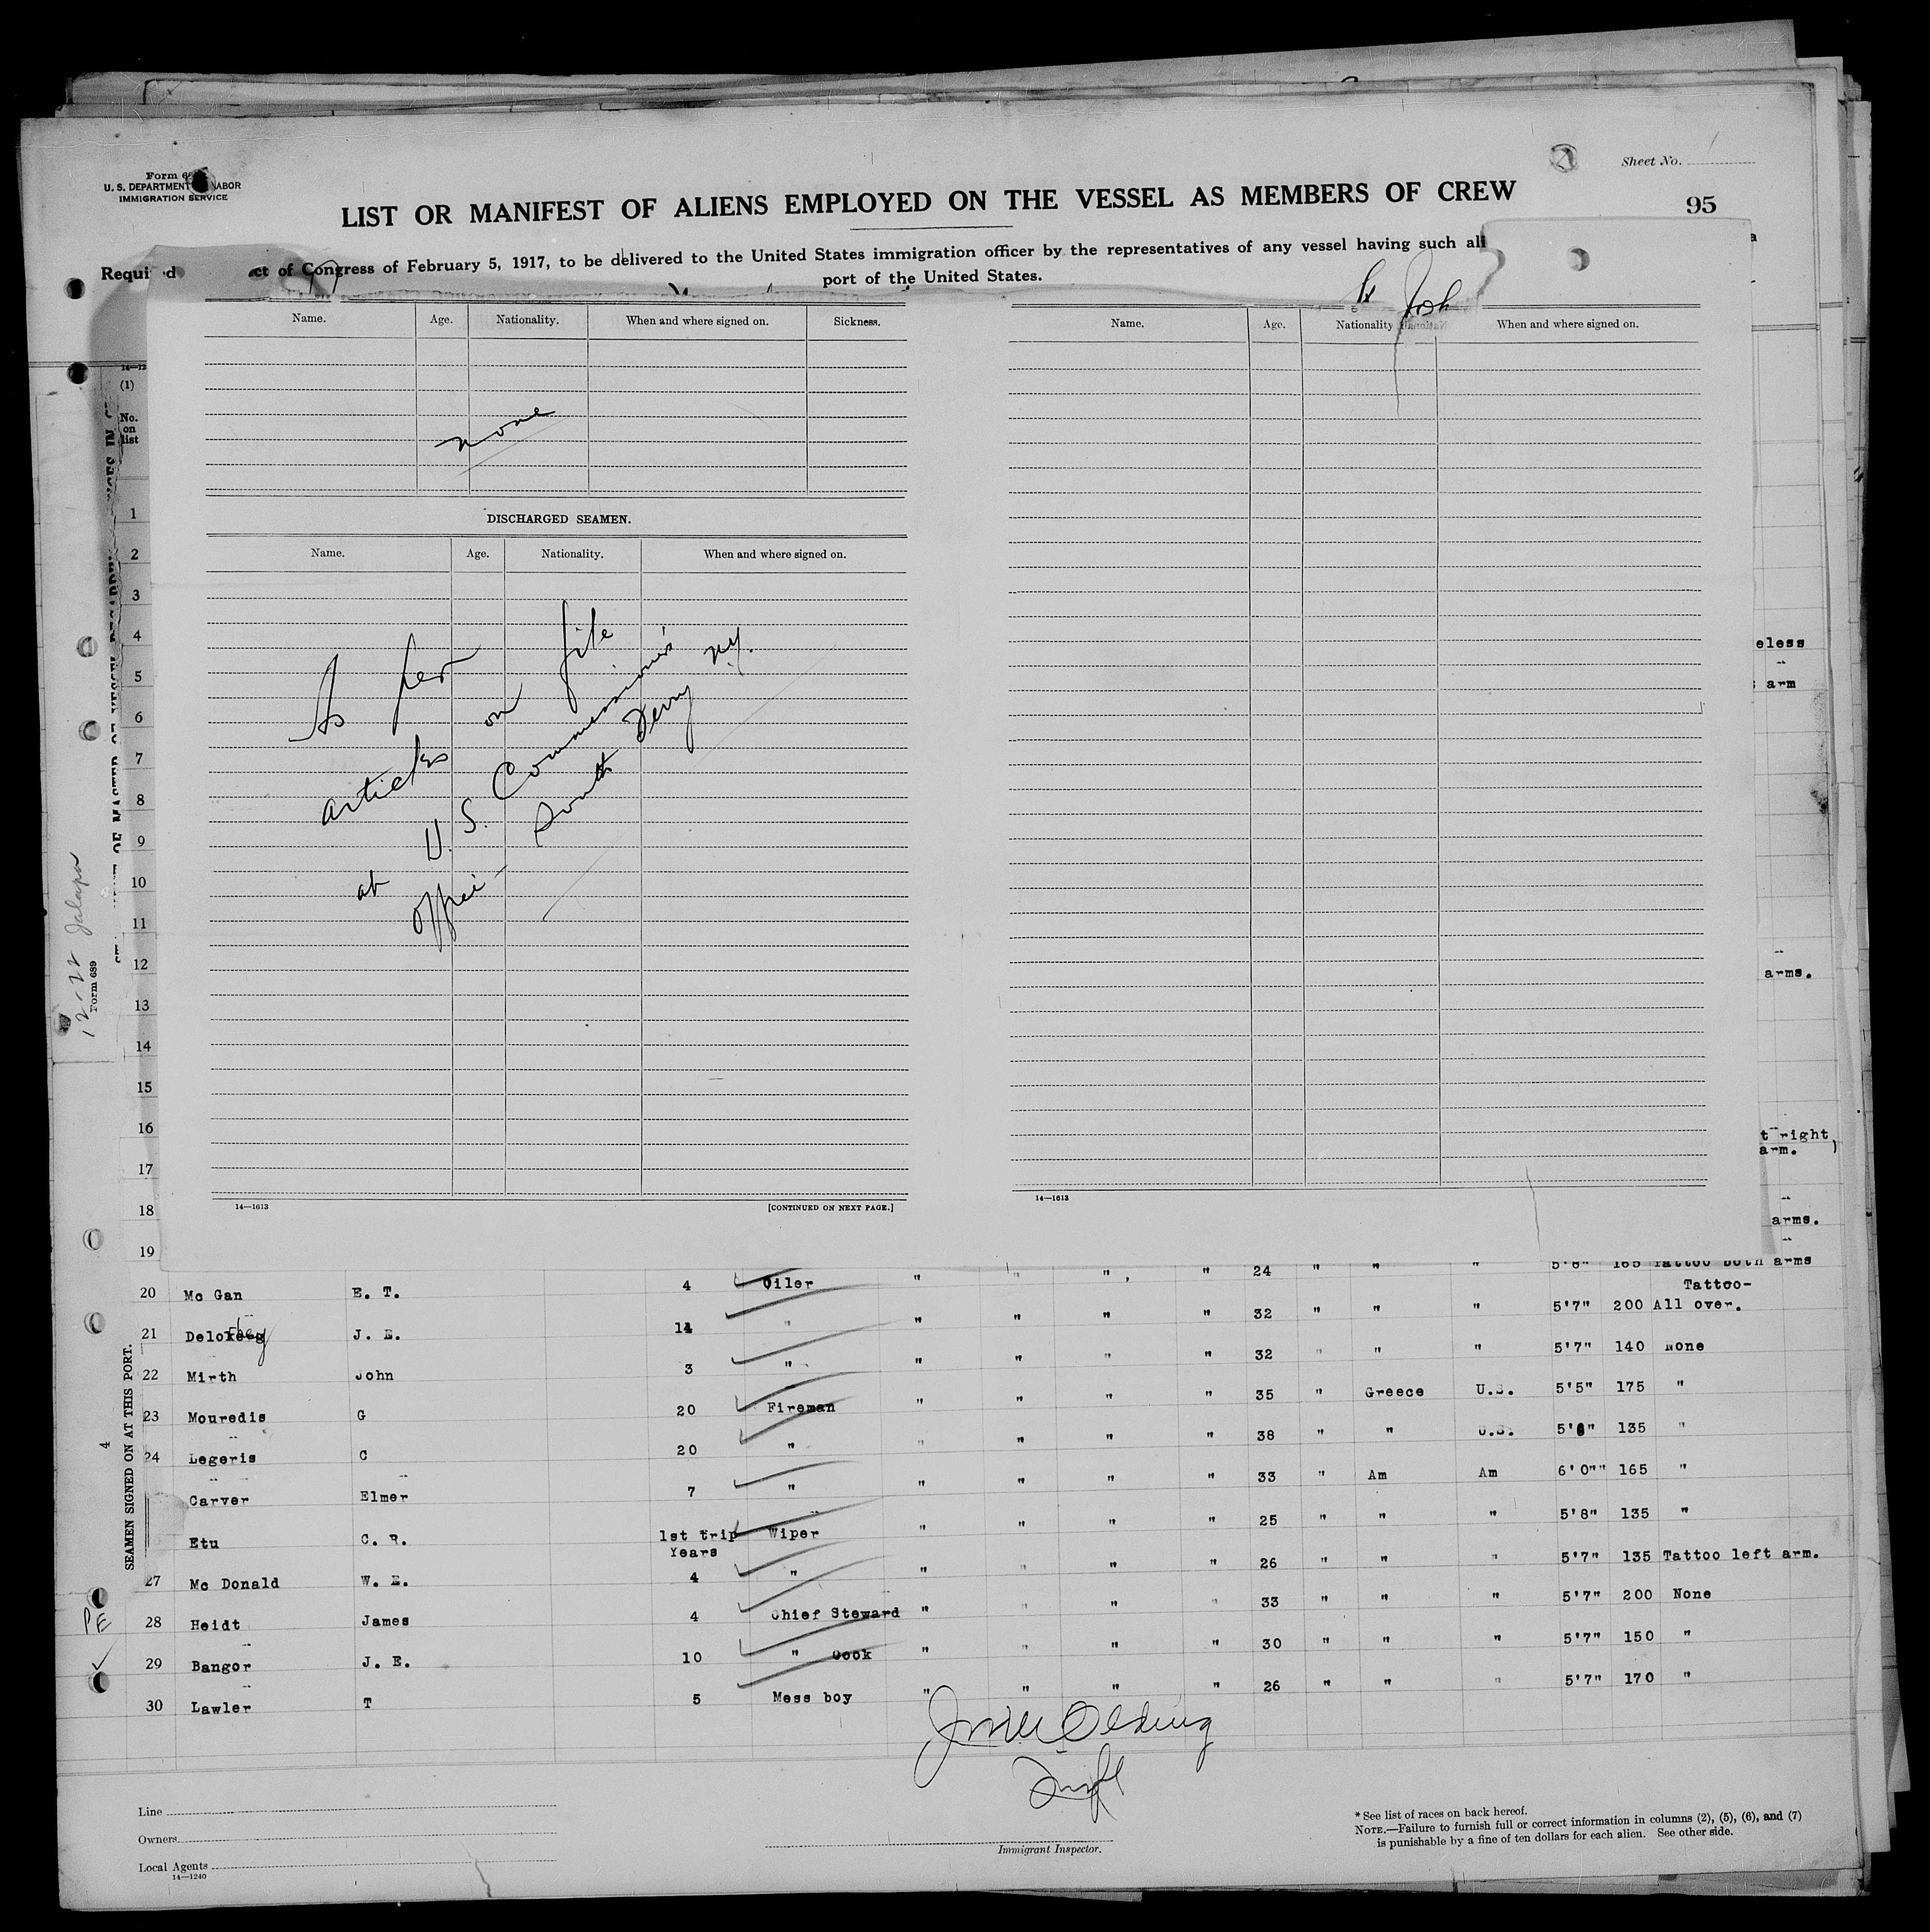 Form 6
U. S. DEPARTMENT LABOR
IMMIGRATION SERVICE
Sheet No. 1
LIST OR MANIFEST OF ALIENS EMPLOYED ON THE VESSEL AS MEMBERS OF CREW
95
Required ct of Congress of February 5, 1917, to be delivered to the United States immigration officer by the representatives of any vessel having such ali
port of the United States.
Name. Age. Nationality. When and where signed on. Sickness.
none
DISCHARGED SEAMEN.
Name. Age. Nationality. When and where signed on.
As per
articles on file
at U. S. Commissioner's
office - South Ferry N.Y.
14—1613 [CONTINUED ON NEXT PAGE.]
Name. Age. Nationality When and where signed on.
14—1613
(1)
No.
on
list
1
2
3
4
5
6
7
8
9
10
11
12
13
14
15
16
17
18
19
eless
arm
arms.
t right
arm.
arms.
12-22 Jalapa
Form 689
SEAMEN SIGNED ON AT THIS PORT.
4
20 Mc Gan E. T. 4 Oiler " " " " 24 " " " 5'8" 165 Tattoo both arms
Tattoo-
21 J. E. 14 " " " " " 32 " " " 5'7" 200 All over.
22 Mirth John 3 " " " " " 32 " " " 5'7" 140 None
23 Mouredis G 20 Fireman " " " " 35 " Greece U.S. 5'5" 175 "
24 Legeris C 20 " " " " " 38 " " U.S. 5'6" 135 "
Carver Elmer 7 " " " " " 33 " Am Am 6'0"" 165 "
Etu C. R. 1st trip Wiper " " " " 25 " " " 5'8" 135 "
Years
27 Mc Donald W. E. 4 " " " " " 26 " " " 5'7" 135 Tattoo left arm.
PE 28 Heidt James 4 Chief Steward " " " " 33 " " " 5'7" 200 None
29 Bangor J. E. 10 " Cook " " " " 30 " " " 5'7" 150 "
30 Lawler T 5 Mess boy " " " " 26 " " " 5'7" 170 "
Line
Owners
Local Agents
14—1240
Immigrant Inspector.
* See list of races on back hereof.
NOTE.—Failure to furnish full or correct information in columns (2), (5), (6), and (7)
is punishable by a fine of ten dollars for each alien. See other side.